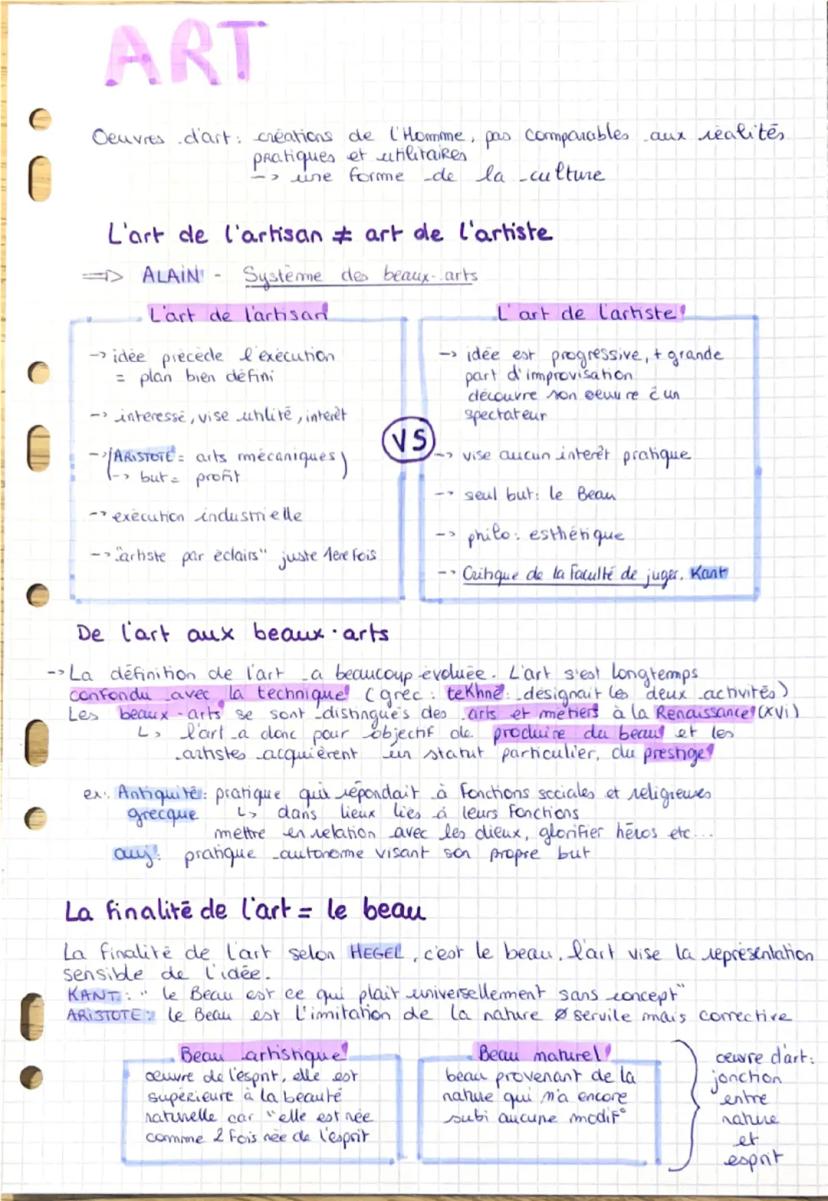 ART
Oeuvres d'art : créations de l'Homme, pas comparables aux réalités
pratiques et utilitaires
-> une forme de la culture
L'art de l'artisan ≠ art de l'artiste
=> ALAIN - Système des beaux-arts
L'art de l'artisan
-> idée précède l'exécution
= plan bien défini
-> interessé, vise utilité, intérêt
-> (ARISTOTE = arts mécaniques)
-> but = profit
-> exécution industrielle
-> "artiste par éclairs" juste 1ère fois
VS
L'art de l'artiste
-> idée est progressive, + grande
part d'improvisation
découvre son oeuvre c̄ un
spectateur
-> vise aucun intérêt pratique
-> seul but : le Beau
-> philo : esthétique
-> Critique de la faculté de juger. Kant
De l'art aux beaux-arts
-> La définition de l'art a beaucoup évoluée. L'art s'est longtemps
confondu avec la technique (grec : tekhnè : désignait les deux activités)
Les beaux-arts se sont distingués des arts et métiers à la Renaissance (XVI)
↳ l'art a donc pour objectif de produire du beau et les
artistes acquièrent un statut particulier, du prestige
ex : Antiquité : pratique qui répondait à fonctions sociales et religieuses
grecque ↳ dans lieux liés à leurs fonctions
mettre en relation avec les dieux, glorifier héros etc...
auj : pratique autonome visant son propre but
La finalité de l'art = le beau
La finalité de l'art selon HEGEL, c'est le beau, l'art vise la représentation
sensible de l'idée.
KANT : " le Beau est ce qui plait universellement sans concept"
ARISTOTE : le Beau est l'imitation de la nature Ø servile mais corrective
Beau artistique
œuvre de l'esprit, elle est
supérieure à la beauté
naturelle car "elle est née
comme 2 fois née de l'esprit
Beau naturel
beau provenant de la
nature qui n'a encore
subi aucune modif°
œuvre d'art :
jonction
entre
nature
et
esprit